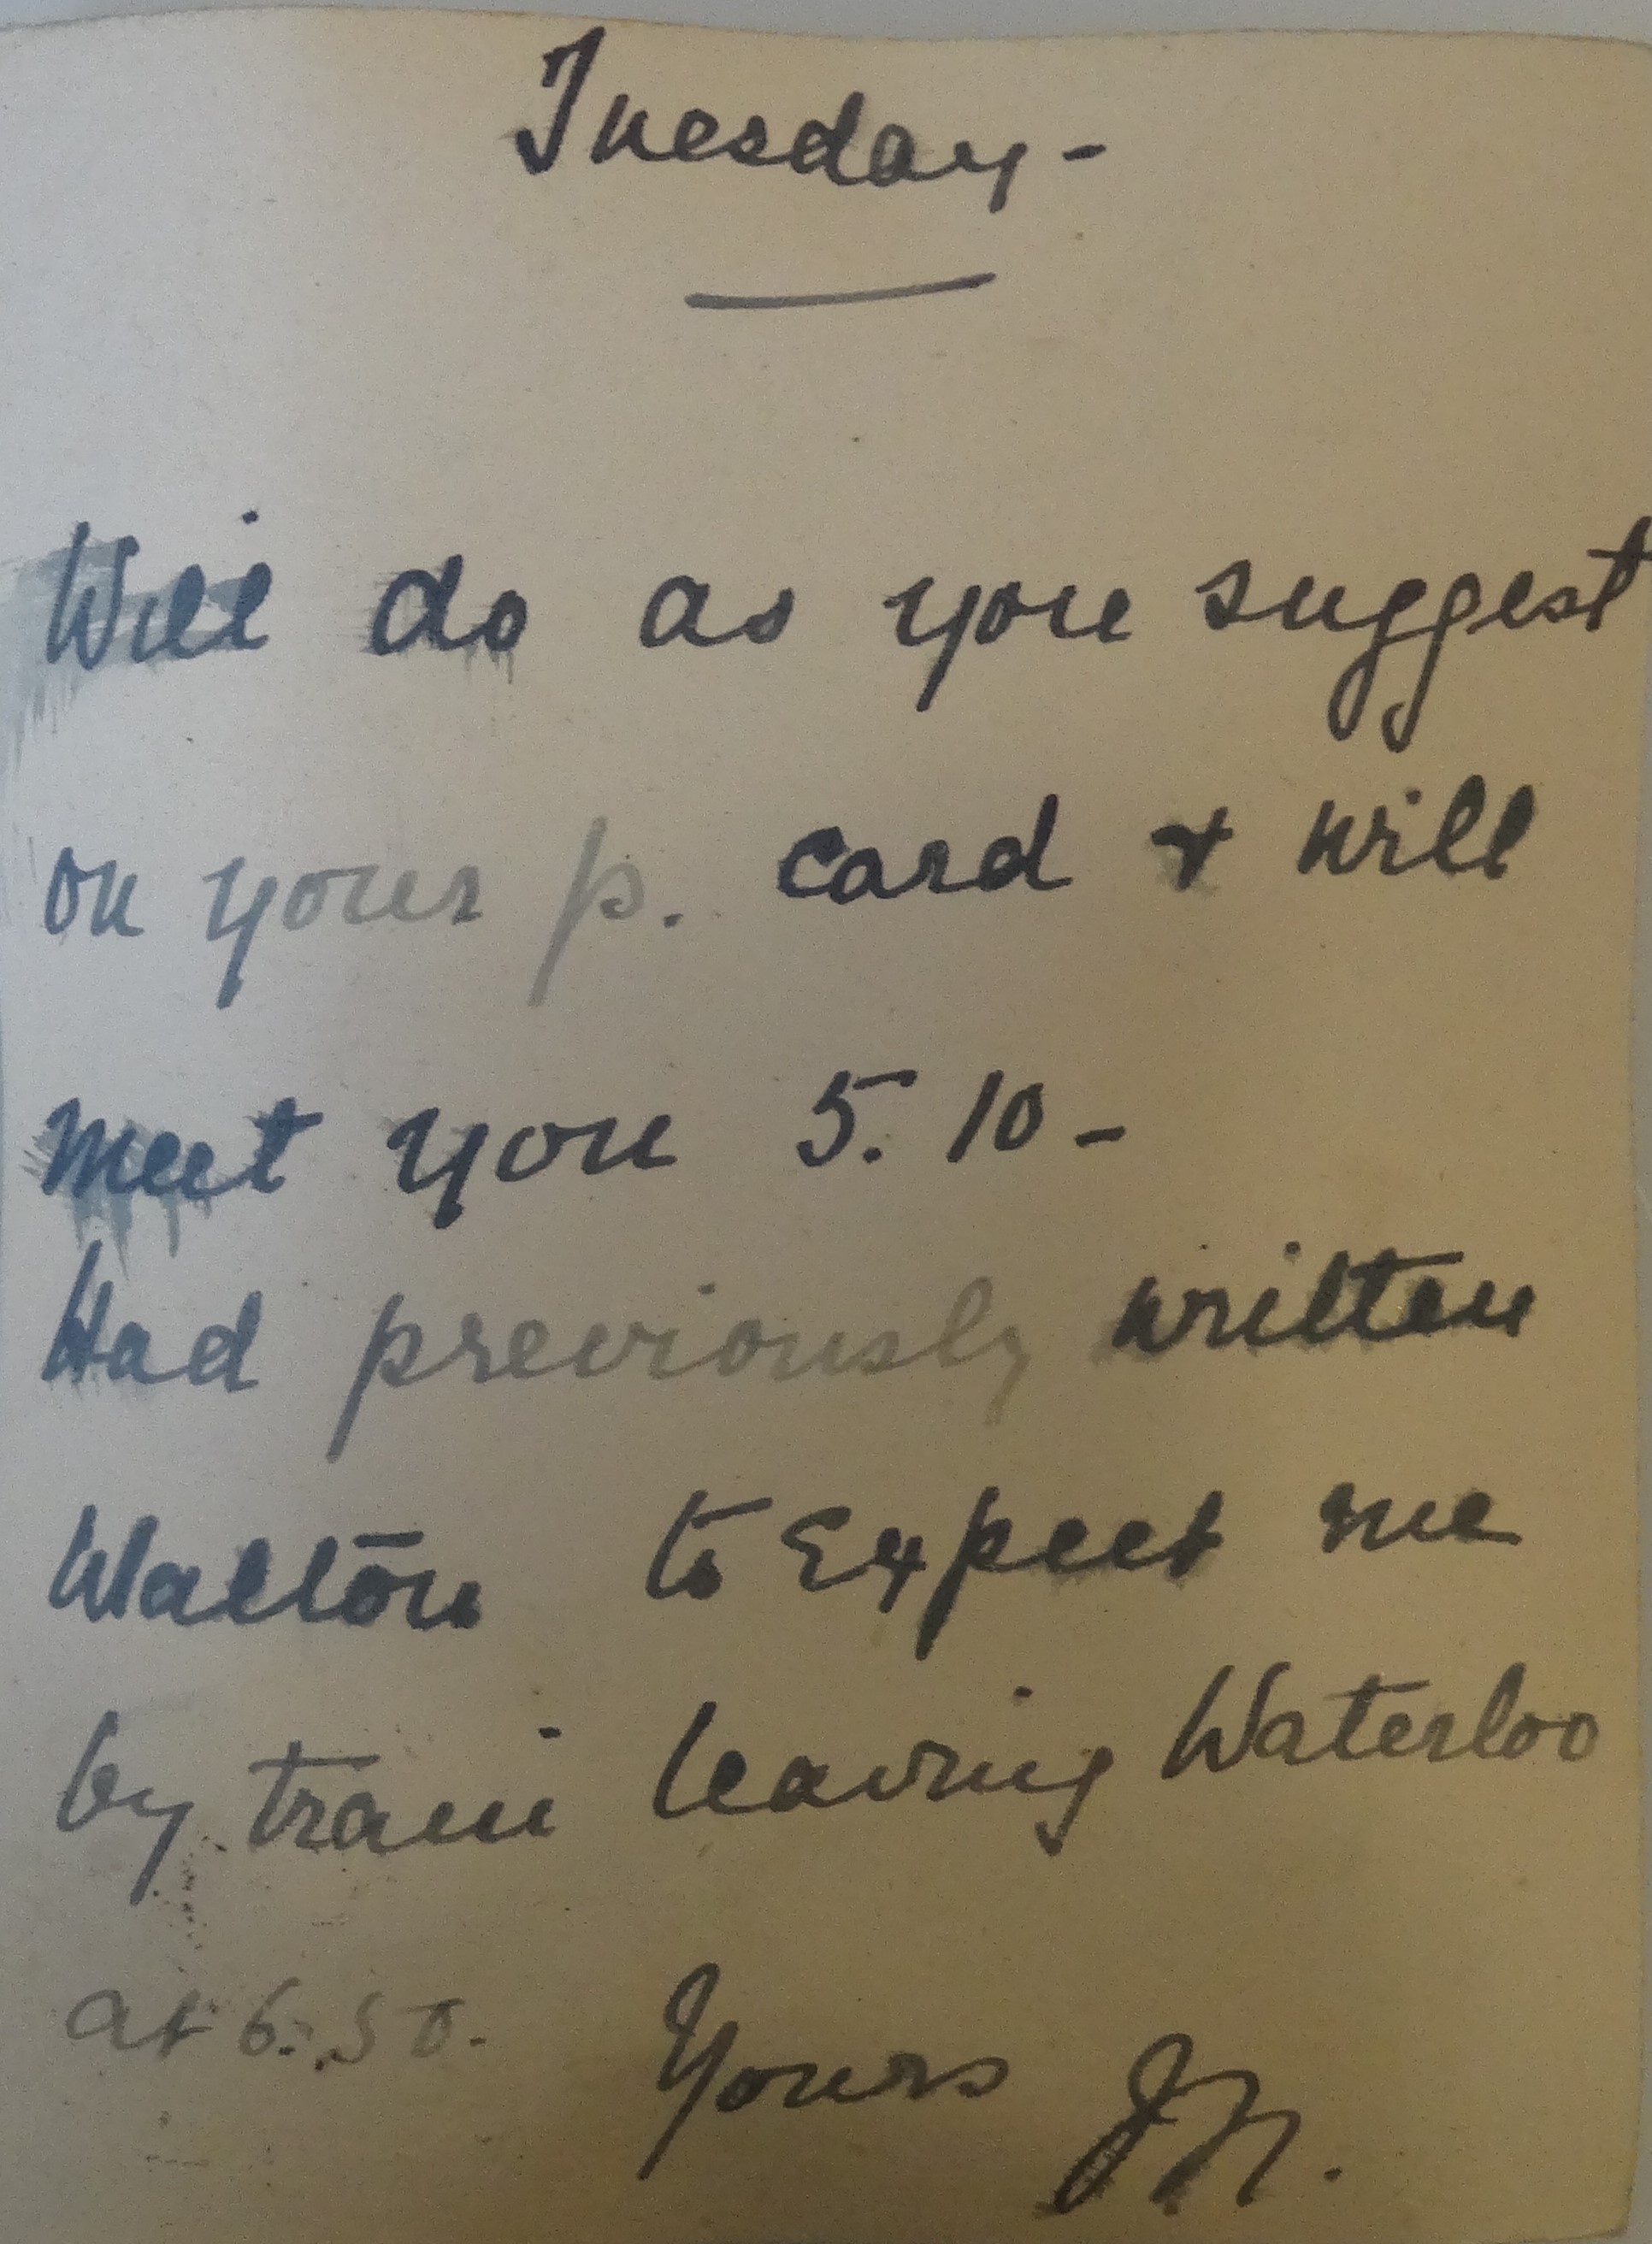 Tuesday -
Will do as you suggest
on your p. card & will
meet you 5.10 -
Had previously written
Walton to Expect me
by train leaving Waterloo
at 6.50.
Yours JN.